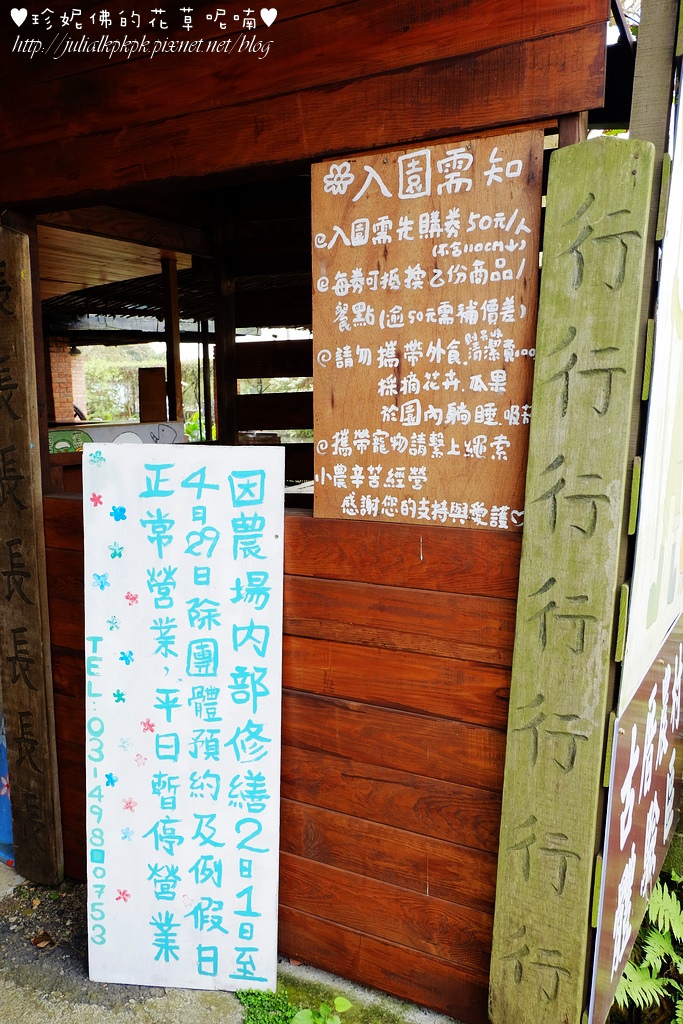 ♥珍妮佛的花草呢喃♥
http://julialkpkpk.pixnet.net/blog
入園需知
@入園需先購券50元/人
(不含110CM↓)
@每券可抵換乙份商品/
餐點(逾50元需補價差)
@請勿攜帶外食
採摘花卉.瓜果
於園內躺睡.吸菸
@攜帶寵物請繫上繩索
小農辛苦經營
感謝您的支持與愛護♡
因農場內部修繕2日1日至
4日29日除團體預約及例假日
正常營業,平日暫停營業
TEL:03-4980753
行行行行行行行
長長長長長長